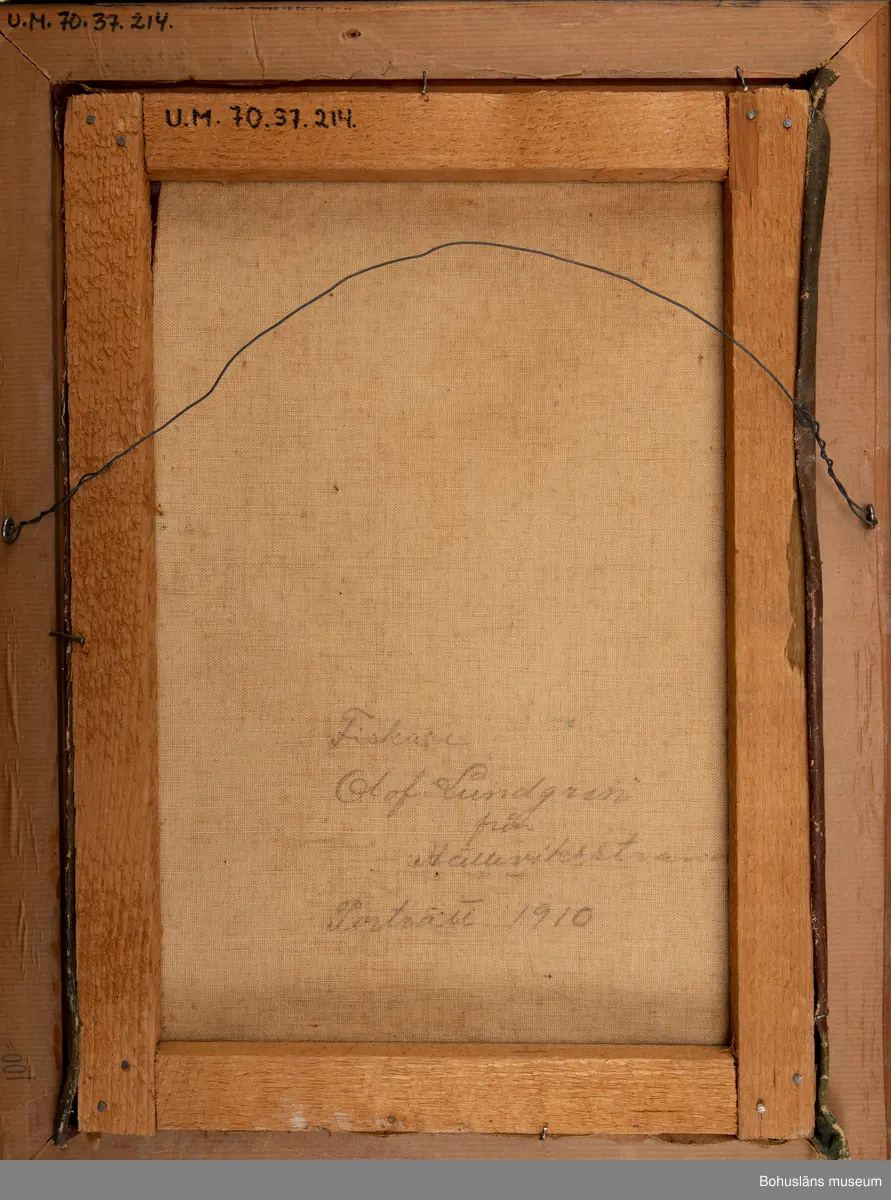 U.M. 70.37.214.
U.M. 70.37.214.
Fiskare
Olof Lundgren
från
Hälleviksstrand
Porträtt 1910
100:-
Bohusläns museum